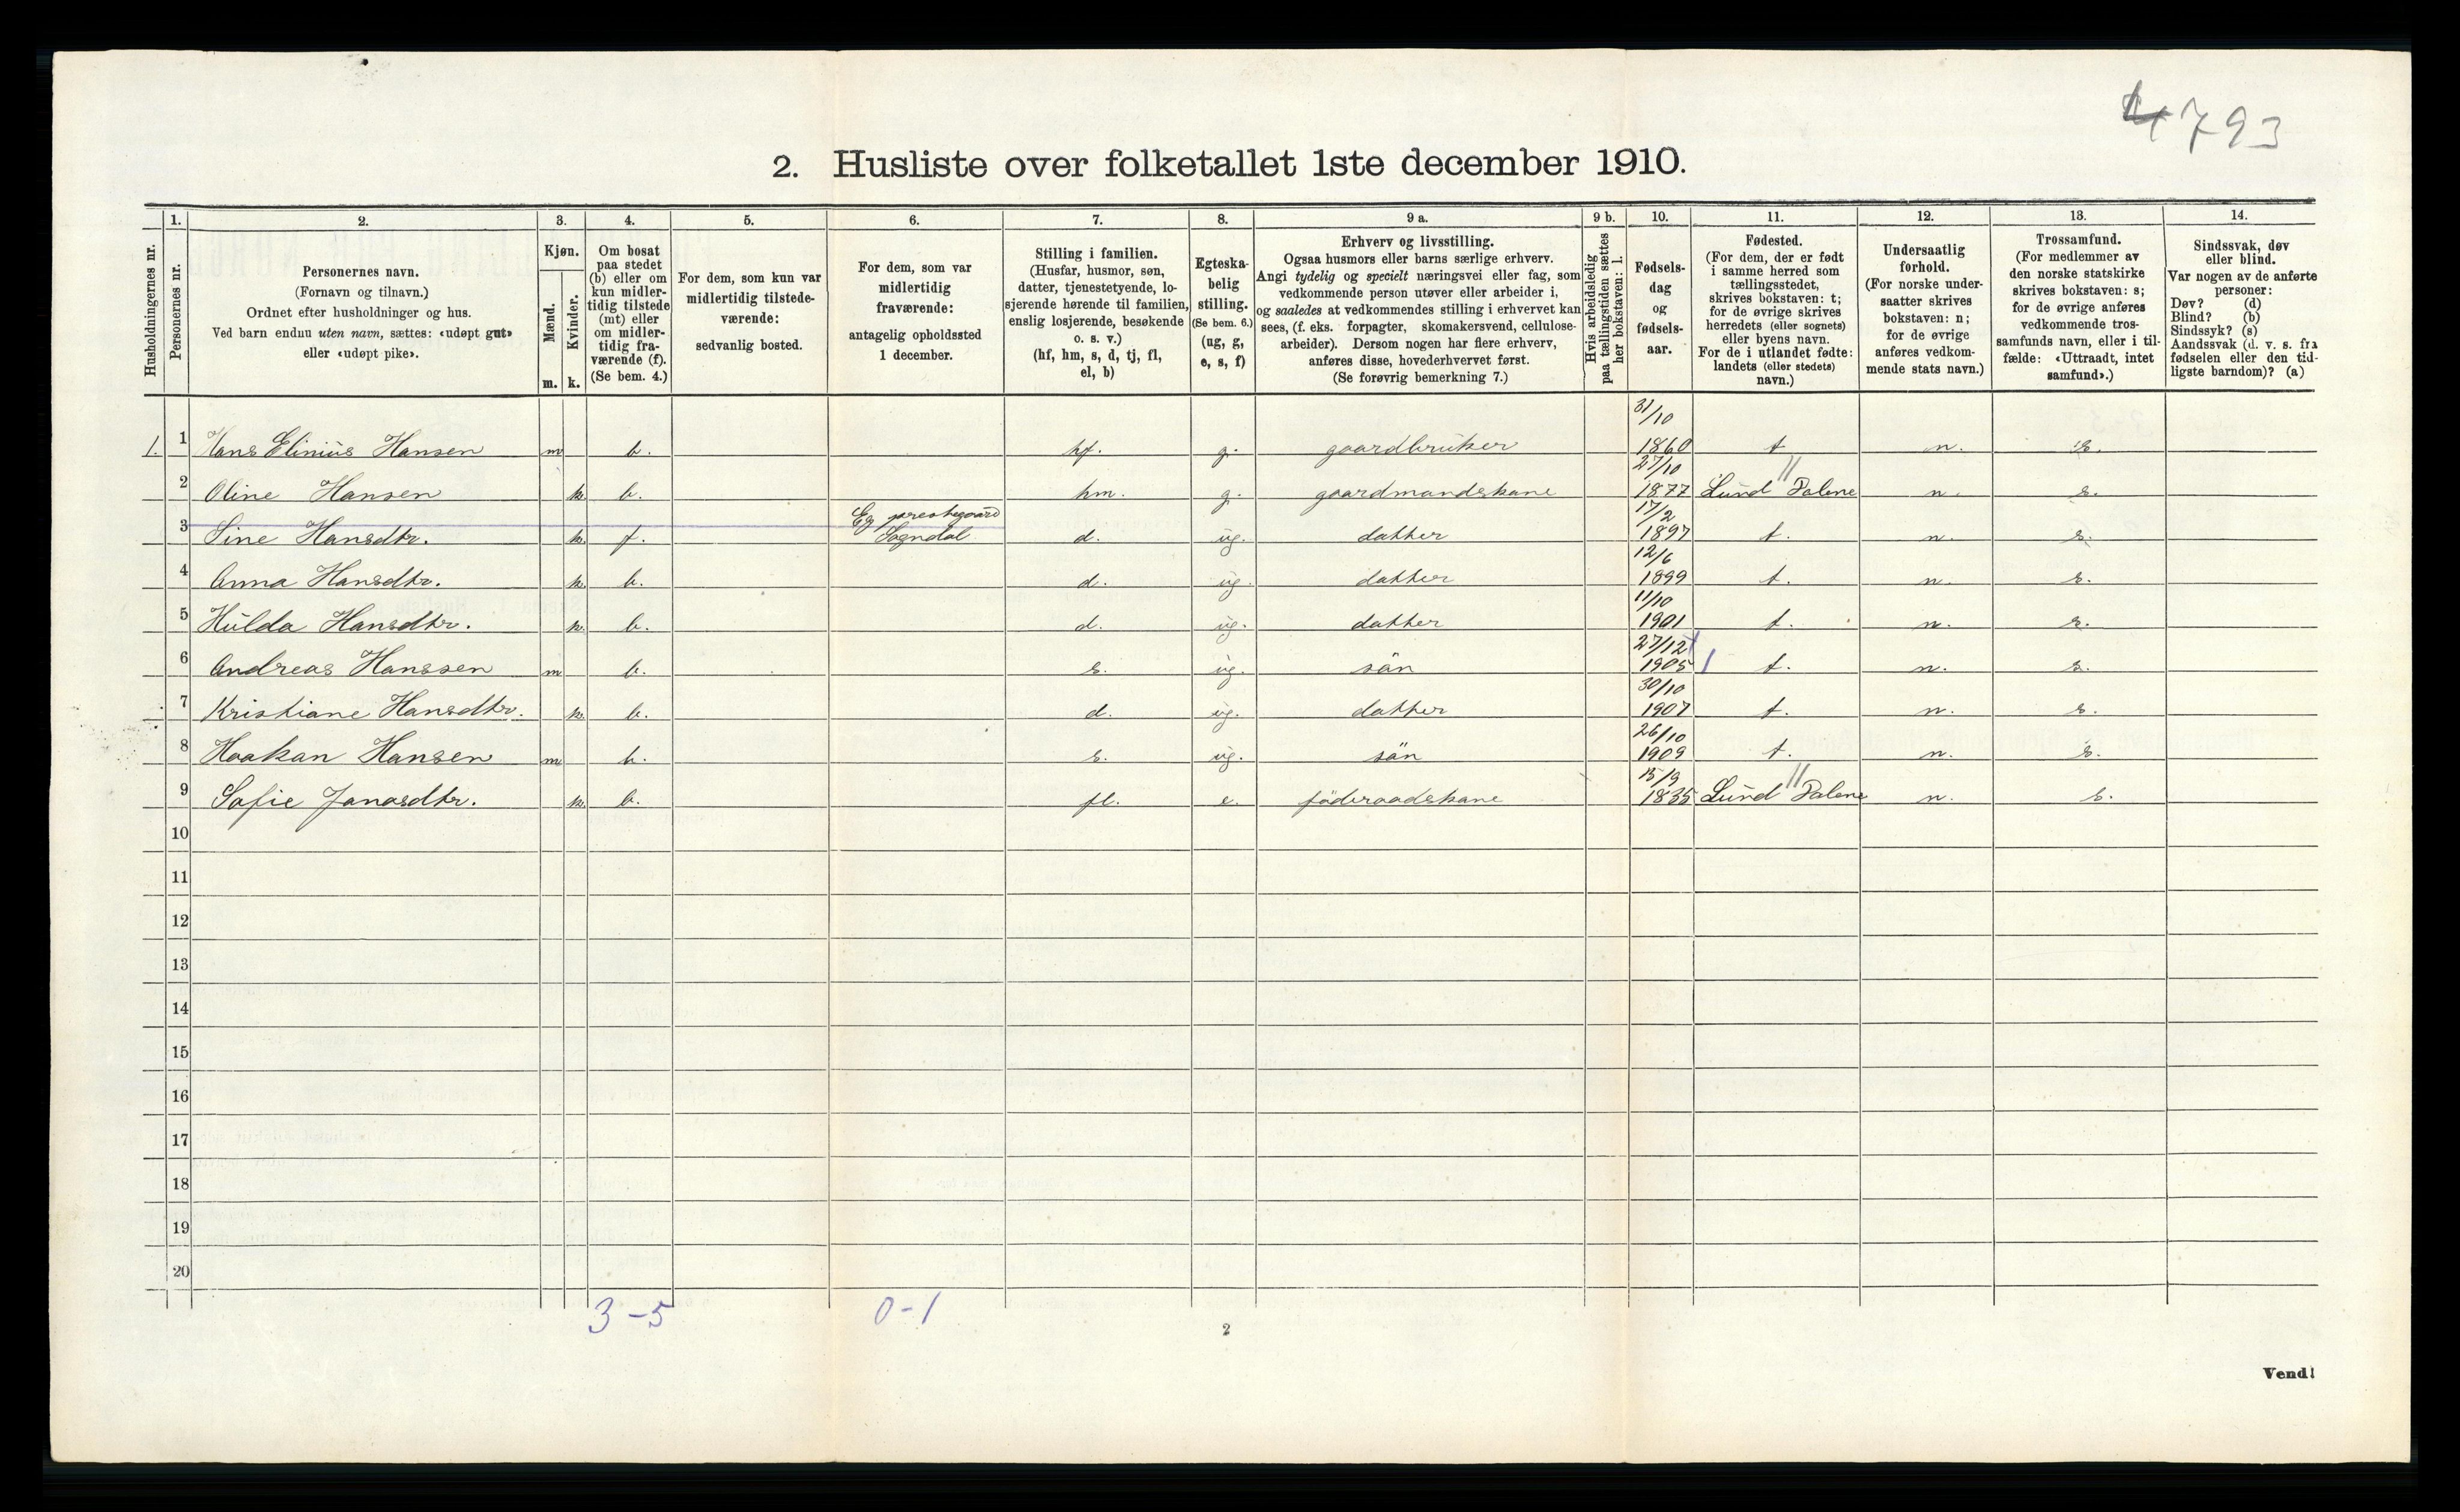 4793
2. Husliste over folketallet 1ste december 1910.
Husholdningernes nr.
1. Personernes nr.
2. Personernes navn.
(Fornavn og tilnavn.)
Ordnet efter husholdninger og hus.
Ved barn endnu uten navn, sættes: «udøpt gut»
eller «udøpt pike».
3. Kjøn.
Mænd. m.
Kvinder. k.
4. Om bosat
paa stedet
(b) eller om
kun midler-
tidig tilstede
(mt) eller
om midler-
tidig fra-
værende (f).
(Se bem. 4.)
5. For dem, som kun var
midlertidig tilstede-
værende:
sedvanlig bosted.
6. For dem, som var
midlertidig
fraværende:
antagelig opholdssted
1 december.
7. Stilling i familien.
(Husfar, husmor, søn,
datter, tjenestetyende, lo-
sjerende hørende til familien,
enslig losjerende, besøkende
o. s. v.)
(hf, hm, s, d, tj, fl,
el, b)
8. Egteska-
belig
stilling.
(Se bem. 6.)
(ug, g,
e, s, f)
9 a. Erhverv og livsstilling.
Ogsaa husmors eller barns særlige erhverv.
Angi tydelig og specielt næringsvei eller fag, som
vedkommende person utøver eller arbeider i,
og saaledes at vedkommendes stilling i erhvervet kan
sees, (f. eks. forpagter, skomakersvend, cellulose-
arbeider). Dersom nogen har flere erhverv,
anføres disse, hovederhvervet først.
(Se forøvrig bemerkning 7.)
9 b. Hvis arbeidsledig
paa tællingstiden sættes
her bokstaven: l.
10. Fødsels-
dag
og
fødsels-
aar.
11. Fødested.
(For dem, der er født
i samme herred som
tællingsstedet,
skrives bokstaven: t;
for de øvrige skrives
herredets (eller sognets)
eller byens navn.
For de i utlandet fødte:
landets (eller stedets)
navn.)
12. Undersaatlig
forhold.
(For norske under-
saatter skrives
bokstaven: n;
for de øvrige
anføres vedkom-
mende stats navn.)
13. Trossamfund.
(For medlemmer av
den norske statskirke
skrives bokstaven: s;
for de øvrige anføres
vedkommende tros-
samfunds navn, eller i til-
fælde: «Uttraadt, intet
samfund».)
14. Sindssvak, døv
eller blind.
Var nogen av de anførte
personer:
Døv? (d)
Blind? (b)
Sindssyk? (s)
Aandssvak (d. v. s. fra
fødselen eller den tid-
ligste barndom)? (a)
1. 1 Hans Elinius Hansen m b. hf. g. gaardbruker 31/10 1860 t n. s.
2 Oline Hansen k. b. hm. g. gaardmandskane 27/10 1877 Lund Dalene n. s.
3 Sine Hansdtr. k. f. Eg prestegaard Sogndal d. ug. datter 17/2 1897 t. n. s.
4 Anna Hansdtr. k. b. d. ug. datter 12/6 1899 t. n. s.
5 Hulda Hansdtr. k. b. d. ug. datter 11/10 1901 t. n. s.
6 Andreas Hanssen m b. s. ug. sön 27/12 1905 t. n. s.
7 Kristiane Hansdtr. k. b. d. ug. datter 30/10 1907 t. n. s.
8 Haakan Hansen m b. s. ug. sön 26/10 1909 t. n. s.
9 Sofie Janasdtr. k. b. fl. e. föderaadskane 15/9 1835 Lund Dalene n. s.
10
11
12
13
14
15
16
17
18
19
20
3-5 0-1
2
Vend!